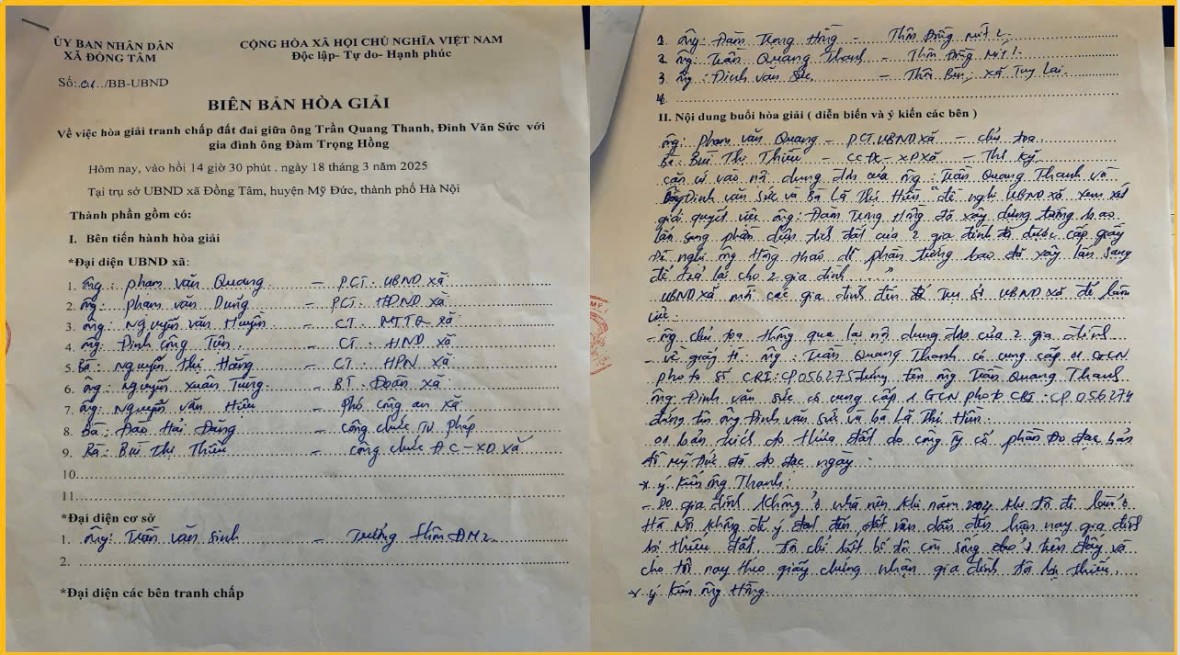 ỦY BAN NHÂN DÂN
XÃ ĐỒNG TÂM
CỘNG HÒA XÃ HỘI CHỦ NGHĨA VIỆT NAM
Độc lập- Tự do- Hạnh phúc
Số:.01../BB-UBND
BIÊN BẢN HÒA GIẢI
Về việc hòa giải tranh chấp đất đai giữa ông Trần Quang Thanh, Đinh Văn Sức với
gia đình ông Đàm Trọng Hồng
Hôm nay, vào hồi 14 giờ 30 phút , ngày 18 tháng 3 năm 2025
Tại trụ sở UBND xã Đồng Tâm, huyện Mỹ Đức, thành phố Hà Nội
Thành phần gồm có:
I. Bên tiến hành hòa giải
*Đại diện UBND xã:
1. ông: phạm văn Quang - PCT. UBND xã
2. ông: phạm văn Dung - PCT. HĐND xã
3. ông: Nguyễn văn Huyện - CT. MTTQ xã
4. ông: Đinh công Tiên - CT. HND xã
5. Bà: Nguyễn thị Hằng - CT. HPN xã
6. ông: Nguyễn xuân Tùng - BT. Đoàn xã
7. ông: Nguyễn văn Hữu - phó công an xã
8. Bà: Đào Hải Đăng - công chức Tư pháp
9. Bà: Bùi Thị Thiều - công chức ĐC-XD xã
10.
11.
*Đại diện cơ sở
1. ông: Trần văn Sinh - Trưởng thôn ĐM2
2.
*Đại diện các bên tranh chấp
1. ông: Đàm Trọng Hồng - Thôn Đồng Mít 2
2. ông: Trần Quang Thanh - Thôn Đồng Mít 2
3. ông: Đinh văn Sức - Thôn xã Tuy Lai
4.
II. Nội dung buổi hòa giải ( diễn biến và ý kiến các bên )
ông: phạm văn Quang - PCT. UBND xã - chủ tọa
Bà: Bùi Thị Thiều - CCĐC-XD xã - Thư ký
căn cứ vào nội dung đơn của ông: Trần Quang Thanh và
Đinh văn sức và Bà Lã Thị Hiền "đề nghị UBND xã xem xét
giải quyết việc ông: Đàm Trọng Hồng đã xây dựng tường bao
lấn sang phần diện tích đất của 2 gia đình đã được cấp giấy
Đề nghị ông Hồng tháo dỡ phần tường bao đã xây lấn sang
để trả lại cho 2 gia đình"
UBND xã mời các gia đình đến Trụ sở UBND xã để làm
việc:
- ông chủ tọa thông qua lại nội dung đơn của 2 gia đình
- về giấy tờ: ông: Trần Quang Thanh có cung cấp 01 GCN
photo số CRI: CP.056275 đứng tên ông Trần Quang Thanh
ông Đinh văn sức có cung cấp 1 GCN photo CRI: CP.056274
đứng tên ông Đinh văn sức và bà Lã Thị Hiền
01 bản trích đo thửa đất do công ty cổ phần Đo đạc bản
đồ Mỹ Đức đã đo đạc ngày
* ý kiến ông Thanh:
- Do gia đình không ở nhà nên khi năm tôi đi làm ở
Hà Nội không để ý đến đất vẫn dẫn đến hiện nay gia đình
bị thiếu đất, tôi chỉ biết bố tôi còn sống cho ở trên đây và
cho tới nay theo giấy chứng nhận gia đình tôi bị thiếu.
* ý kiến ông Hồng